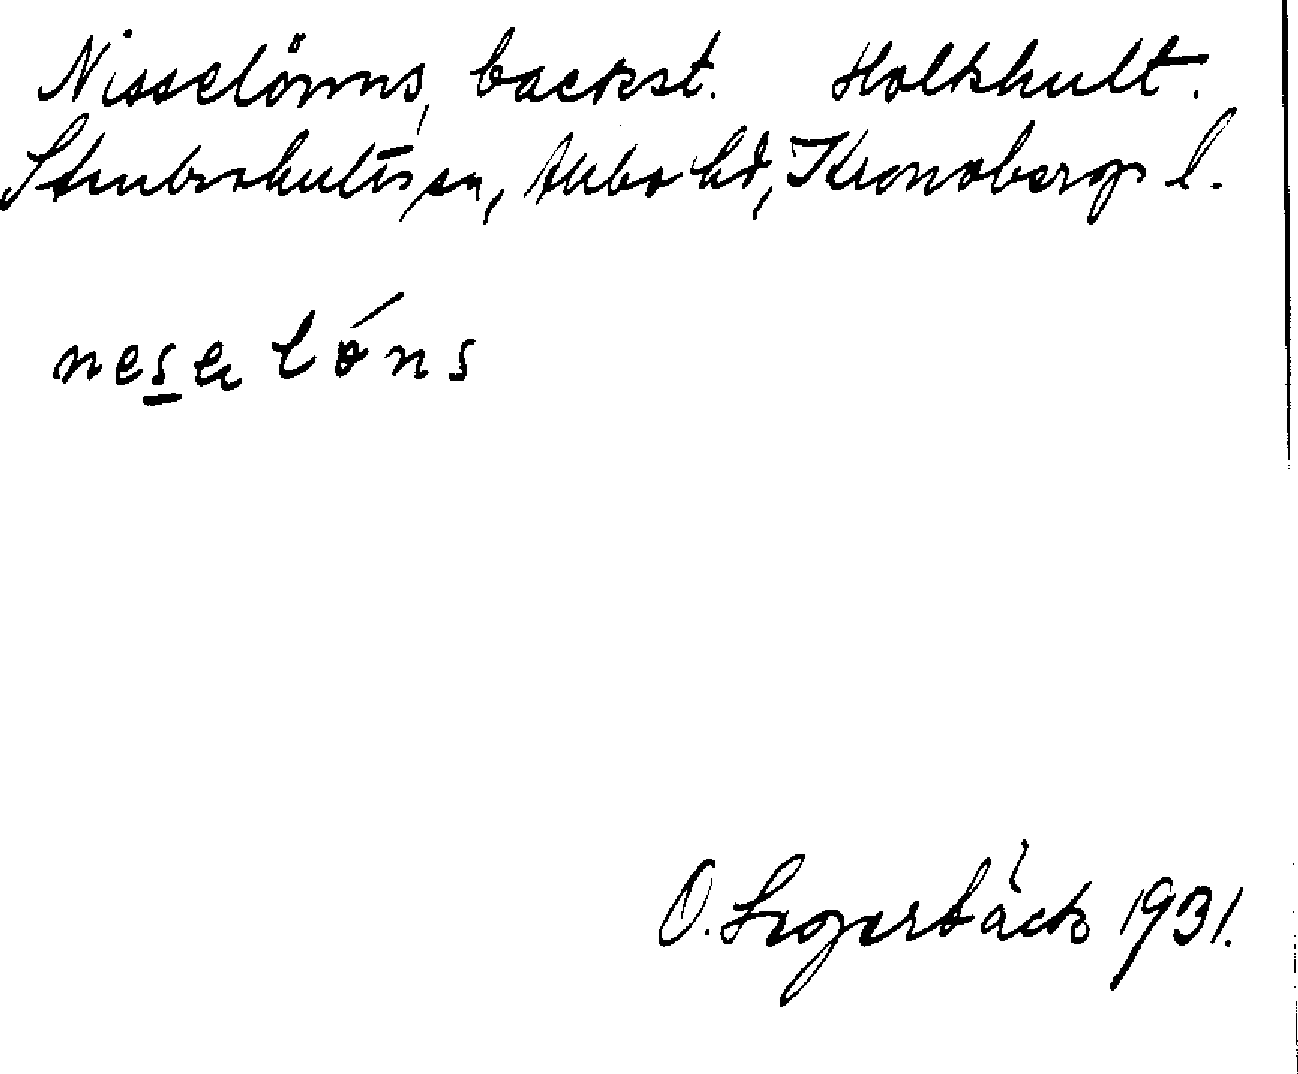 Nisselöns, backst. Holkhult.
Stenbrohults sn, Allbo hd, Kronobergs l.
nesa lóns
O. Segerbäck 1931.